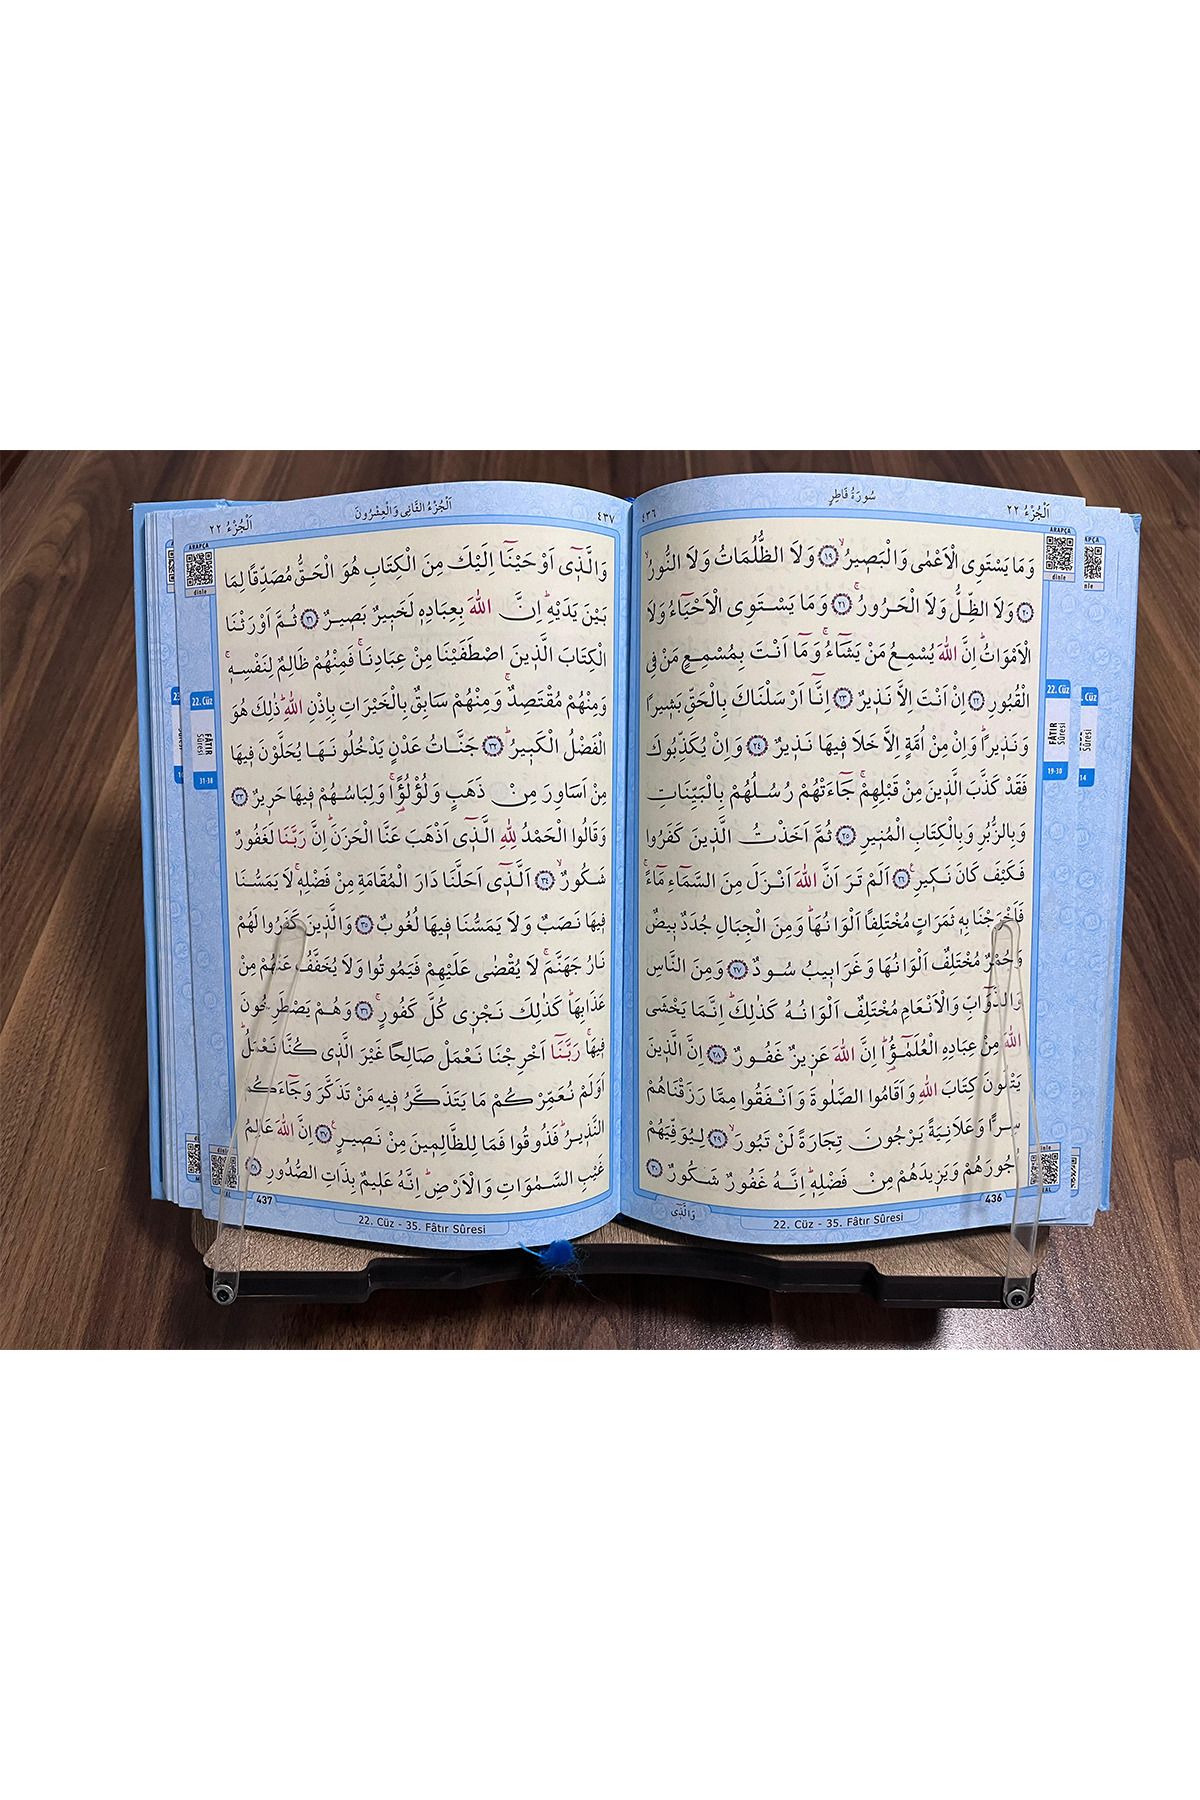 اَلْجُزْءُ ٢٢
سُورَةُ فَاطِرٍ
٤٣٦
وَمَا يَسْتَوِى الْاَعْمٰى وَالْبَصٖيرُۙ ﴿١٩﴾ وَلَا الظُّلُمَاتُ وَلَا النُّورُۙ
﴿٢٠﴾ وَلَا الظِّلُّ وَلَا الْحَرُورُۚ ﴿٢١﴾ وَمَا يَسْتَوِى الْاَحْيَٓاءُ وَلَا
الْاَمْوَاتُؕ اِنَّ اللّٰهَ يُسْمِعُ مَنْ يَشَٓاءُۚ وَمَٓا اَنْتَ بِمُسْمِعٍ مَنْ فِى
الْقُبُورِ ﴿٢٢﴾ اِنْ اَنْتَ اِلَّا نَذٖيرٌ ﴿٢٣﴾ اِنَّٓا اَرْسَلْنَاكَ بِالْحَقِّ بَشٖيرًا
وَنَذٖيرًاؕ وَاِنْ مِنْ اُمَّةٍ اِلَّا خَلَا فٖيهَا نَذٖيرٌ ﴿٢٤﴾ وَاِنْ يُكَذِّبُوكَ
فَقَدْ كَذَّبَ الَّذٖينَ مِنْ قَبْلِهِمْۚ جَٓاءَتْهُمْ رُسُلُهُمْ بِالْبَيِّنَاتِ
وَبِالزُّبُرِ وَبِالْكِتَابِ الْمُنٖيرِ ﴿٢٥﴾ ثُمَّ اَخَذْتُ الَّذٖينَ كَفَرُوا
فَكَيْفَ كَانَ نَكٖيرِࣖ ﴿٢٦﴾ اَلَمْ تَرَ اَنَّ اللّٰهَ اَنْزَلَ مِنَ السَّمَٓاءِ مَٓاءًۚ
فَاَخْرَجْنَا بِهٖ ثَمَرَاتٍ مُخْتَلِفًا اَلْوَانُهَاؕ وَمِنَ الْجِبَالِ جُدَدٌ بٖيضٌ
وَحُمْرٌ مُخْتَلِفٌ اَلْوَانُهَا وَغَرَابٖيبُ سُودٌ ﴿٢٧﴾ وَمِنَ النَّاسِ
وَالدَّوَٓابِّ وَالْاَنْعَامِ مُخْتَلِفٌ اَلْوَانُهُ كَذٰلِكَؕ اِنَّمَا يَخْشَى
اللّٰهَ مِنْ عِبَادِهِ الْعُلَمٰٓؤُ۬اؕ اِنَّ اللّٰهَ عَزٖيزٌ غَفُورٌ ﴿٢٨﴾ اِنَّ الَّذٖينَ
يَتْلُونَ كِتَابَ اللّٰهِ وَاَقَامُوا الصَّلٰوةَ وَاَنْفَقُوا مِمَّا رَزَقْنَاهُمْ
سِرًّا وَعَلَانِيَةً يَرْجُونَ تِجَارَةً لَنْ تَبُورَۙ ﴿٢٩﴾ لِيُوَفِّيَهُمْ
اُجُورَهُمْ وَيَزٖيدَهُمْ مِنْ فَضْلِهٖؕ اِنَّهُ غَفُورٌ شَكُورٌ ﴿٣٠﴾
436
وَالَّذٖى
22. Cüz - 35. Fâtır Sûresi
ARAPÇA
dinle
22. Cüz
FÂTIR
Sûresi
19-30
٤٣٧
اَلْجُزْءُ الثَّانِى وَالْعِشْرُونَ
اَلْجُزْءُ ٢٢
وَالَّذٖٓى اَوْحَيْنَٓا اِلَيْكَ مِنَ الْكِتَابِ هُوَ الْحَقُّ مُصَدِّقًا لِمَا
بَيْنَ يَدَيْهِؕ اِنَّ اللّٰهَ بِعِبَادِهٖ لَخَبٖيرٌ بَصٖيرٌ ﴿٣١﴾ ثُمَّ اَوْرَثْنَا
الْكِتَابَ الَّذٖينَ اصْطَفَيْنَا مِنْ عِبَادِنَاۚ فَمِنْهُمْ ظَالِمٌ لِنَفْسِهٖۚ
وَمِنْهُمْ مُقْتَصِدٌۚ وَمِنْهُمْ سَابِقٌ بِالْخَيْرَاتِ بِاِذْنِ اللّٰهِؕ ذٰلِكَ هُوَ
الْفَضْلُ الْكَبٖيرُؕ ﴿٣٢﴾ جَنَّاتُ عَدْنٍ يَدْخُلُونَهَا يُحَلَّوْنَ فٖيهَا
مِنْ اَسَاوِرَ مِنْ ذَهَبٍ وَلُؤْلُؤًاۚ وَلِبَاسُهُمْ فٖيهَا حَرٖيرٌ ﴿٣٣﴾
وَقَالُوا الْحَمْدُ لِلّٰهِ الَّذٖٓى اَذْهَبَ عَنَّا الْحَزَنَؕ اِنَّ رَبَّنَا لَغَفُورٌ
شَكُورٌۙ ﴿٣٤﴾ اَلَّذٖٓى اَحَلَّنَا دَارَ الْمُقَامَةِ مِنْ فَضْلِهٖۚ لَا يَمَسُّنَا
فٖيهَا نَصَبٌ وَلَا يَمَسُّنَا فٖيهَا لُغُوبٌ ﴿٣٥﴾ وَالَّذٖينَ كَفَرُوا لَهُمْ
نَارُ جَهَنَّمَۚ لَا يُقْضٰى عَلَيْهِمْ فَيَمُوتُوا وَلَا يُخَفَّفُ عَنْهُمْ مِنْ
عَذَابِهَاؕ كَذٰلِكَ نَجْزٖى كُلَّ كَفُورٍۚ ﴿٣٦﴾ وَهُمْ يَصْطَرِخُونَ
فٖيهَاۚ رَبَّنَٓا اَخْرِجْنَا نَعْمَلْ صَالِحًا غَيْرَ الَّذٖى كُنَّا نَعْمَلُؕ
اَوَلَمْ نُعَمِّرْكُمْ مَا يَتَذَكَّرُ فٖيهِ مَنْ تَذَكَّرَ وَجَٓاءَكُمُ
النَّذٖيرُؕ فَذُوقُوا فَمَا لِلظَّالِمٖينَ مِنْ نَصٖيرٍࣖ ﴿٣٧﴾ اِنَّ اللّٰهَ عَالِمُ
غَيْبِ السَّمٰوَاتِ وَالْاَرْضِؕ اِنَّهُ عَلٖيمٌ بِذَاتِ الصُّدُورِ ﴿٣٨﴾
437
22. Cüz - 35. Fâtır Sûresi
ARAPÇA
dinle
22. Cüz
FÂTIR
Sûresi
31-38